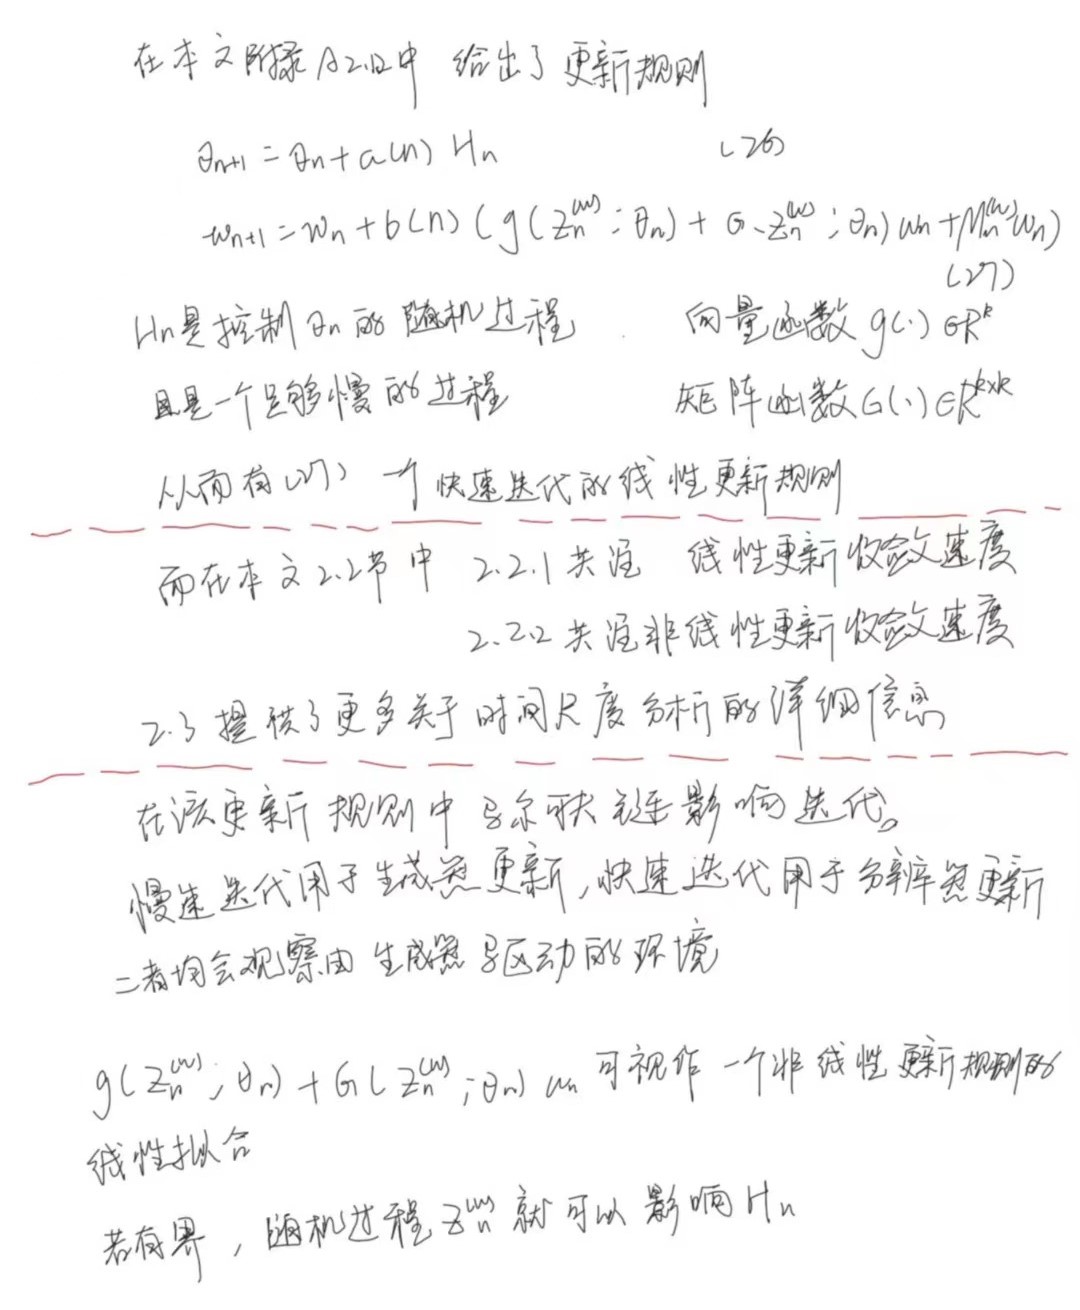 在本文附录A2.1.2中 给出了更新规则
θn+1 = θn + a(n) Hn (26)
wn+1 = wn + b(n) (g(Zn^(w); θn) + G(Zn^(w); θn) wn + Mn^(w) wn)
(27)
Hn是控制θn的随机过程 . 向量函数 g(·)∈R^k
且是一个足够慢的过程 矩阵函数G(·)∈R^k×k
从而有(27) 一个快速迭代的线性更新规则
而在本文2.2节中 2.2.1关注 线性更新收敛速度
2.2.2关注非线性更新收敛速度
2.3提供了更多关于时间尺度分析的详细信息
在该更新规则中马尔可夫链影响迭代。
慢速迭代用于生成器更新,快速迭代用于分辨器更新
二者均会观察由生成器驱动的环境
g(Zn^(w); θn) + G(Zn^(w); θn) wn 可视作一个非线性更新规则的
线性拟合
若有界,随机过程Zn^(w)就可以影响Hn